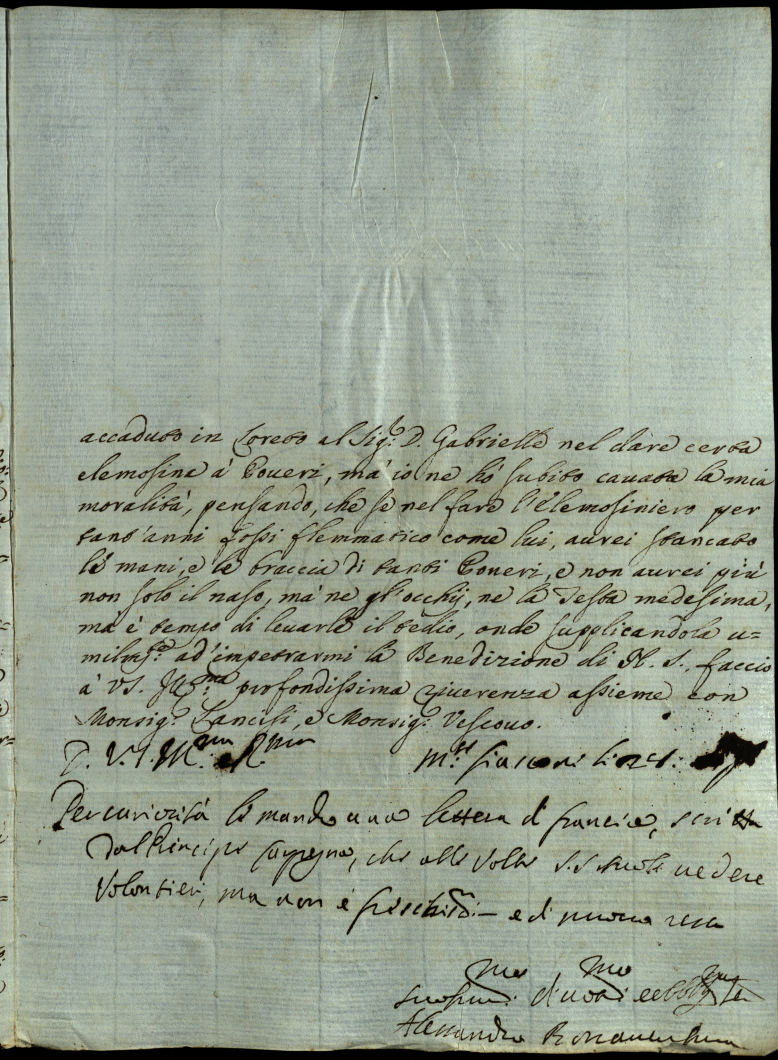 accaduto in Loreto al Sig.r D. Gabrielle nel dare certa
elemosina à Poueri, mà io ne hò subito cauata la mia
moralità, pensando, che se nel fare l'Elemosiniero per
tant'anni fossi flemmatico come lui, aurei stancato
le mani, e le braccia di tanti Poueri, e non aurei più
non solo il naso, mà ne gl'occhij, ne la Testa medesima,
mà è tempo di leuarle il tedio, onde supplicandola u=
milm.te ad'impetrarmi la Benedizione di N. S. faccio
à VS. Ill.ma profondissima riuerenza assieme con
Monsig.r Lancisi, e Monsig.r Vescouo.
P. V. S. Ill.ma e R.ma
Per curiosità le mando una lettera di francia, scritta
Dal Principe che alle volte S.S. suole uedere
Volontieri, ma non è e di nuouo resto
suo diuot.mo ed obblig.mo
Alessandro